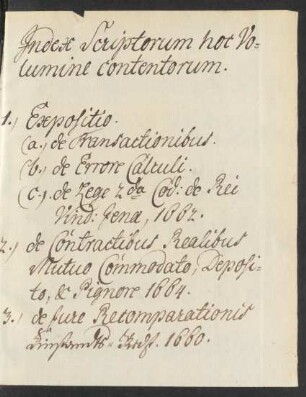 Index Scriptorum hoc Vo-
lumine contentorum.
1., Expositio.
(a., de Transactionibus.
(b., de Errore Calculi.
(c., de Lege 2da Cod: de Rei
Vind: Jenæ, 1682.
2., de Contractibus Realibus
Mutuo Com̄odato, Deposi-
to, & Pignore 1684.
3., de jure Recomparationis
1660.